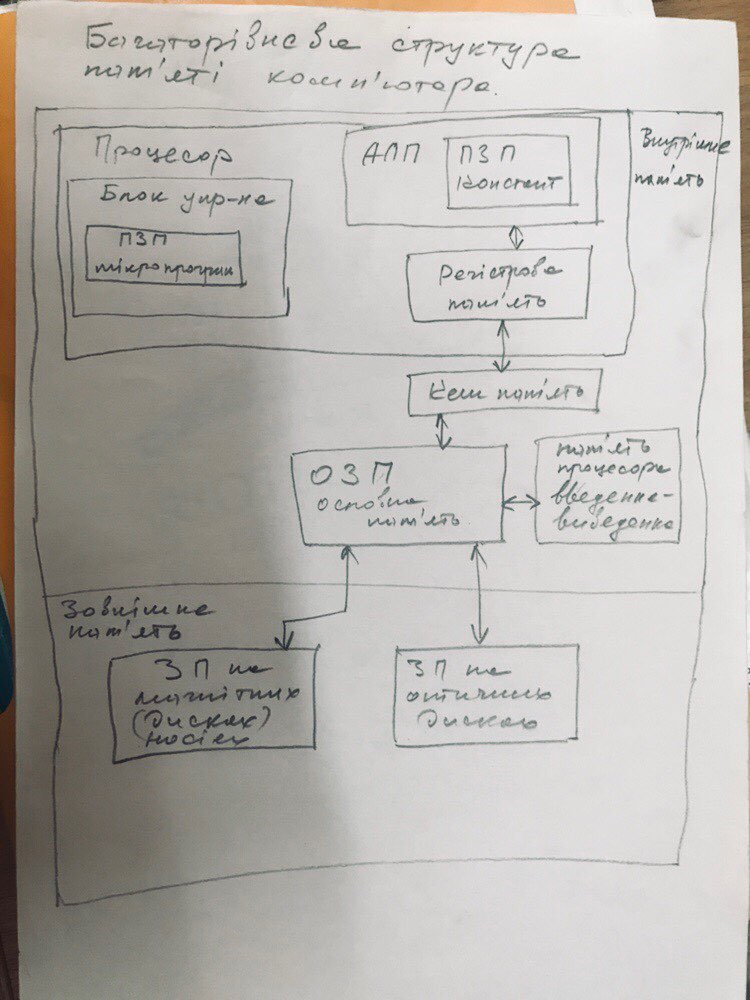 Багаторівнева структура
пам'яті комп'ютера.
Внутрішня
пам'ять
Процесор
Блок упр-ня
ПЗП
мікропрограм
АЛП
ПЗП
констант
Регістрова
пам'ять
Кеш пам'ять
ОЗП
основна
пам'ять
пам'ять
процесора
введення-
виведення
Зовнішня
пам'ять
ЗП на
магнітних
(дисках)
носіях
ЗП на
оптичних
дисках